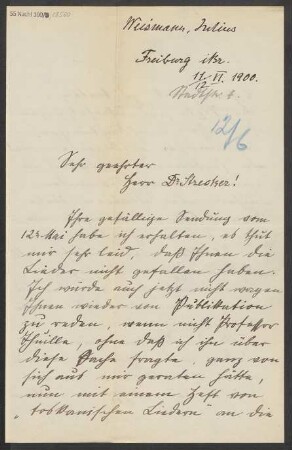 55 Nachl 100/B
Weismann, Julius
Freiburg i/Br.
11. VI. 1900.
Stadtstr. 4.
12/6
Sehr geehrter
Herr Dr Strecker!
Ihre gefällige Sendung vom
12t Mai habe ich erhalten, es thut
mir sehr leid, daß Ihnen die
Lieder nicht gefallen haben.
Ich würde auch jetzt nicht wagen
Ihnen wieder von Publikation
zu reden, wenn nicht Professor
Thuille, ohne daß ich ihn über
diese Sache fragte, ganz von
sich aus mir geraten hätte,
nun mit einem Heft von
"toskanischen Liedern" an die